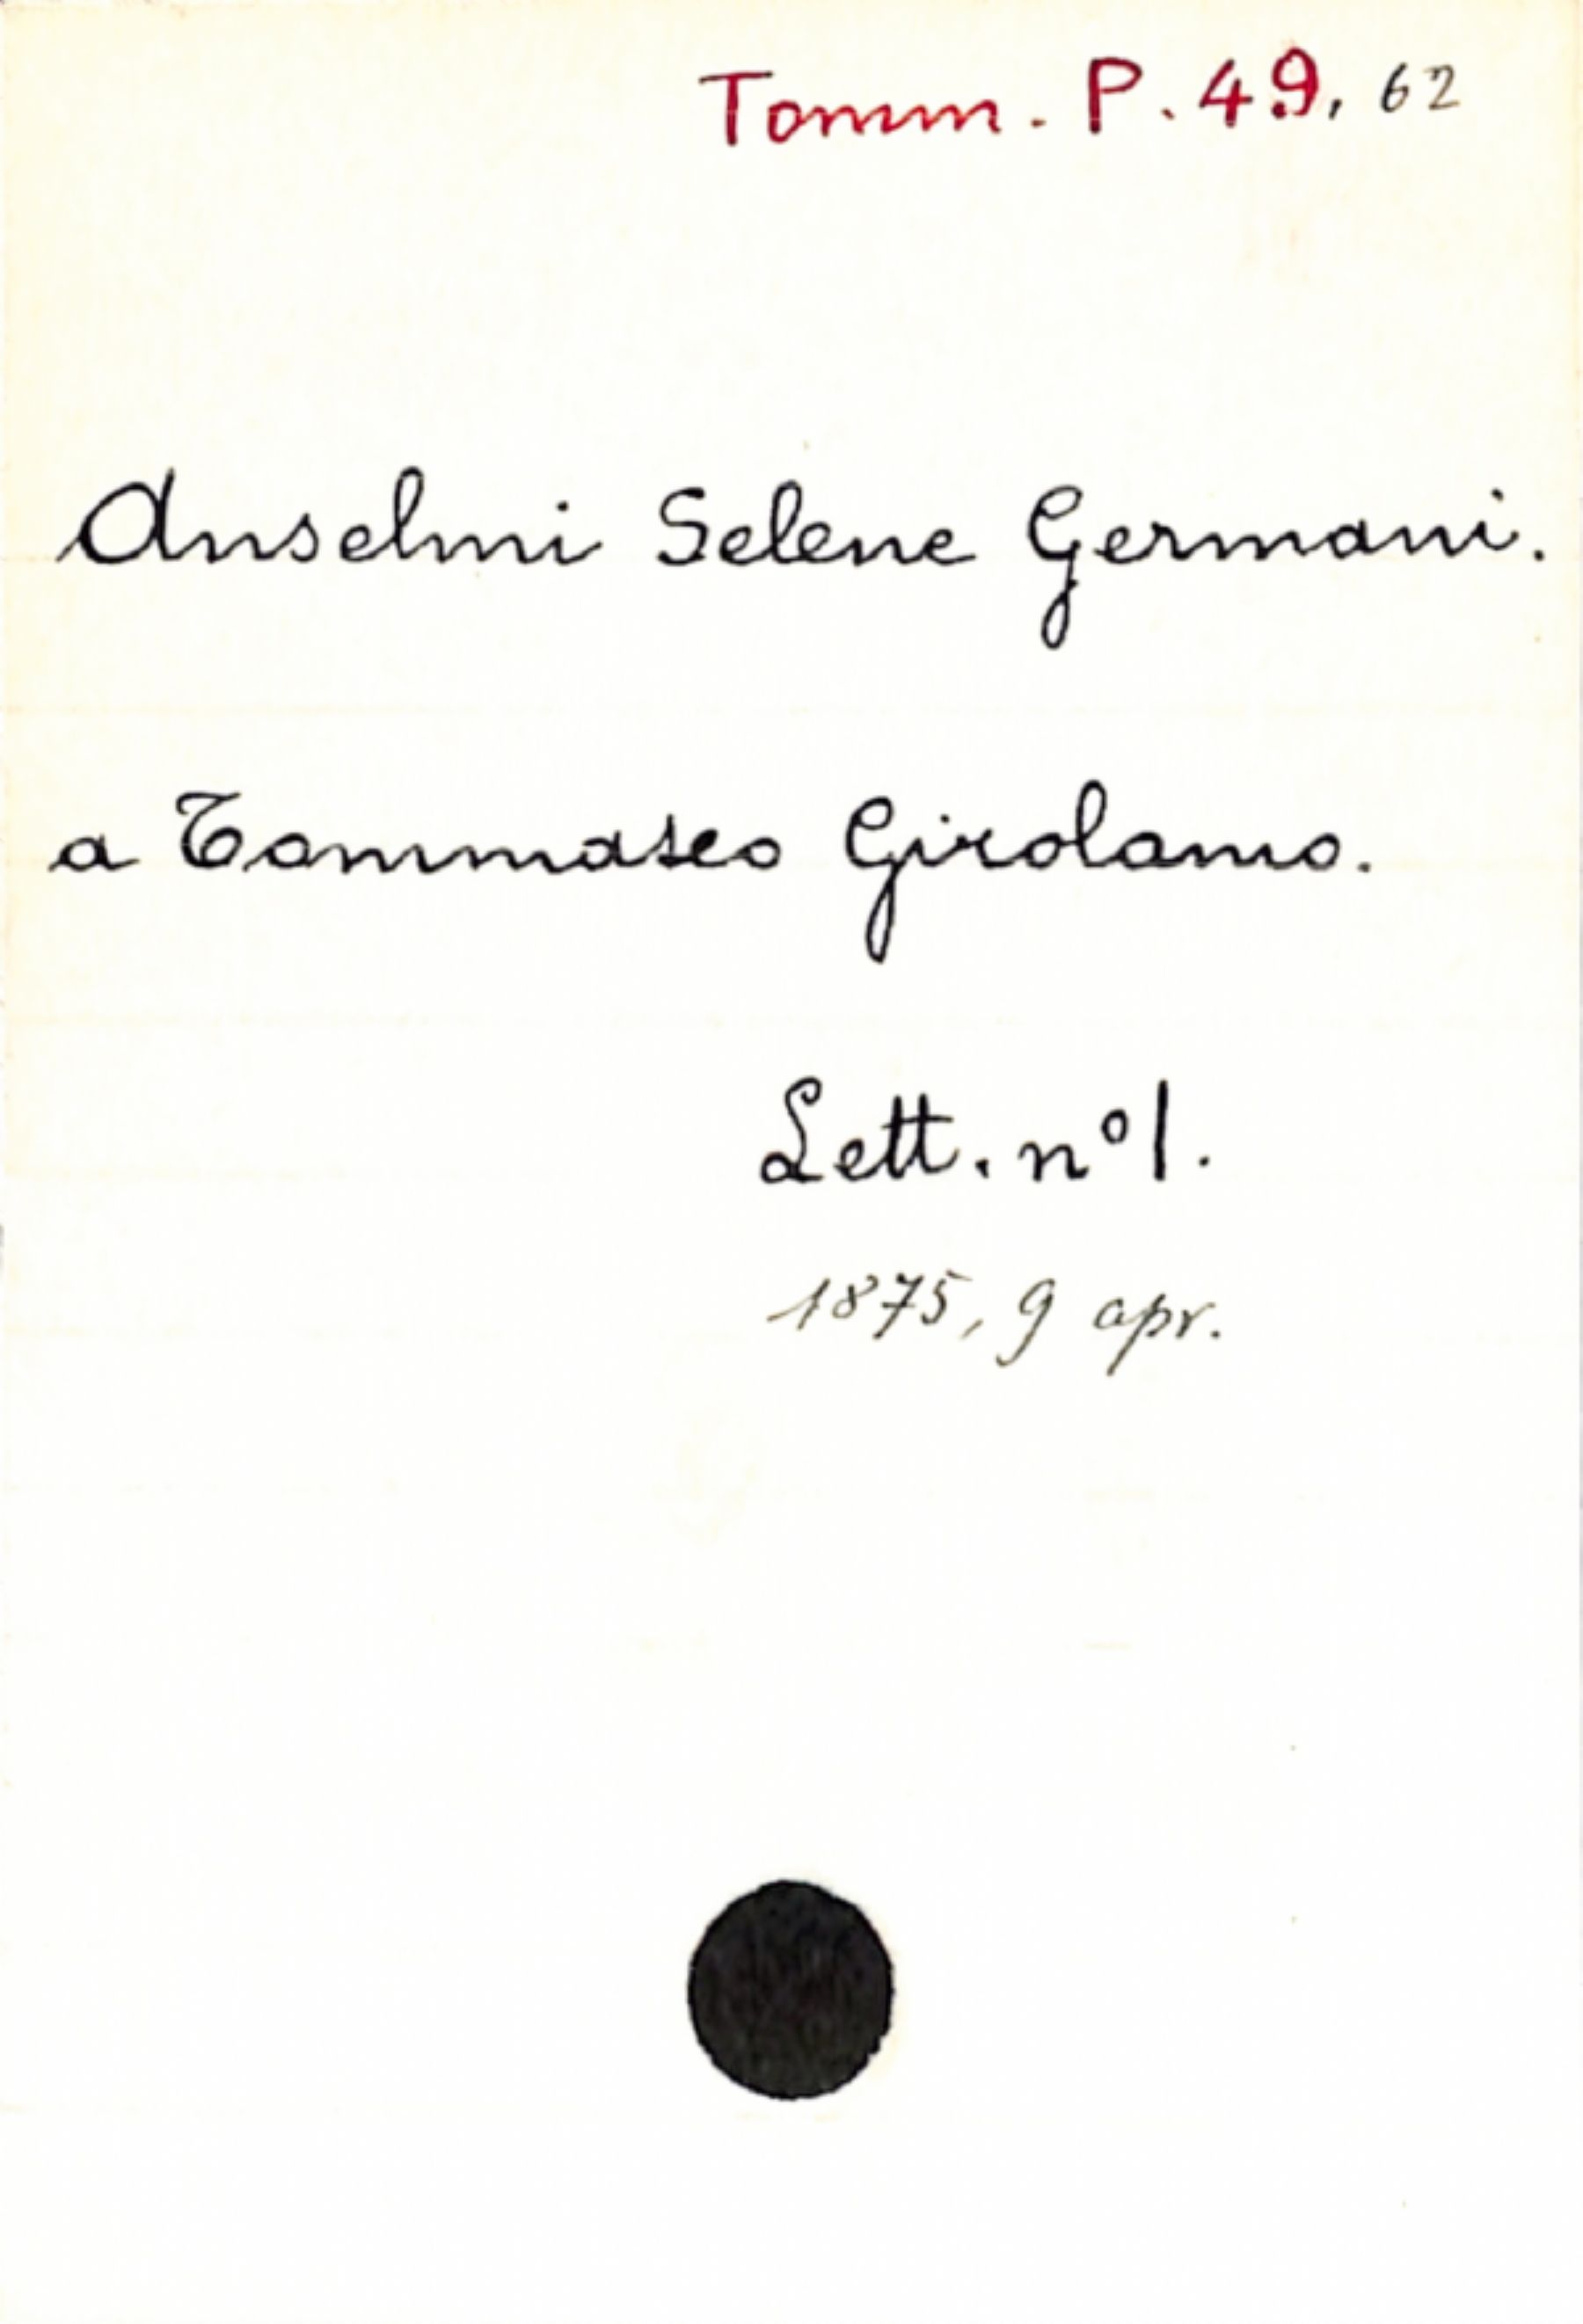 Tomm. P. 49, 62
Anselmi Selene Germani.
a Tommaseo Girolamo.
Lett. n° 1.
1875, 9 apr.